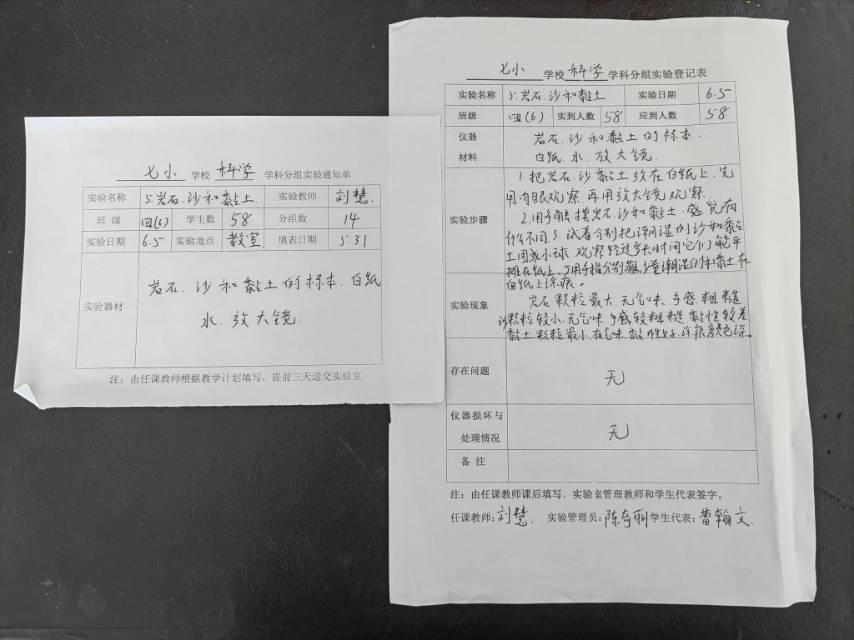 七小 学校 科学 学科分组实验通知单
实验名称 5.岩石、沙和黏土 实验教师 刘慧
班 级 四(6) 学生数 58 分组数 14
实验日期 6.5 实验地点 教室 填表日期 5.31
实验器材 岩石、沙和黏土的标本、白纸
水、放大镜
注：由任课教师根据教学计划填写，提前三天送交实验室
七小 学校 科学 学科分组实验登记表
实验名称 5.岩石、沙和黏土 实验日期 6.5
班级 四(6) 实到人数 58 应到人数 58
仪器 岩石、沙和黏土的标本、
材料 白纸、水、放大镜
实验步骤
1.把岩石、沙、黏土放在白纸上，先
用肉眼观察，再用放大镜观察。
2.用手触摸岩石、沙和黏土，感觉有
什么不同。3.试着分别把潮湿的沙和黏
土团成小球，观察经过多长时间它们能平
摊在纸上。4.用手指分别蘸少量潮湿的黏土在
白纸上涂痕。
实验现象
岩石颗粒最大、无气味、手感粗糙
沙颗粒较小、无气味、手感较粗糙、黏性较差
黏土颗粒最小、有气味、黏性好、涂痕颜色深。
存在问题 无
仪器损坏与
处理情况 无
备 注
注：由任课教师课后填写，实验室管理教师和学生代表签字。
任课教师：刘慧 实验管理员：陈奇 学生代表：曹翰文